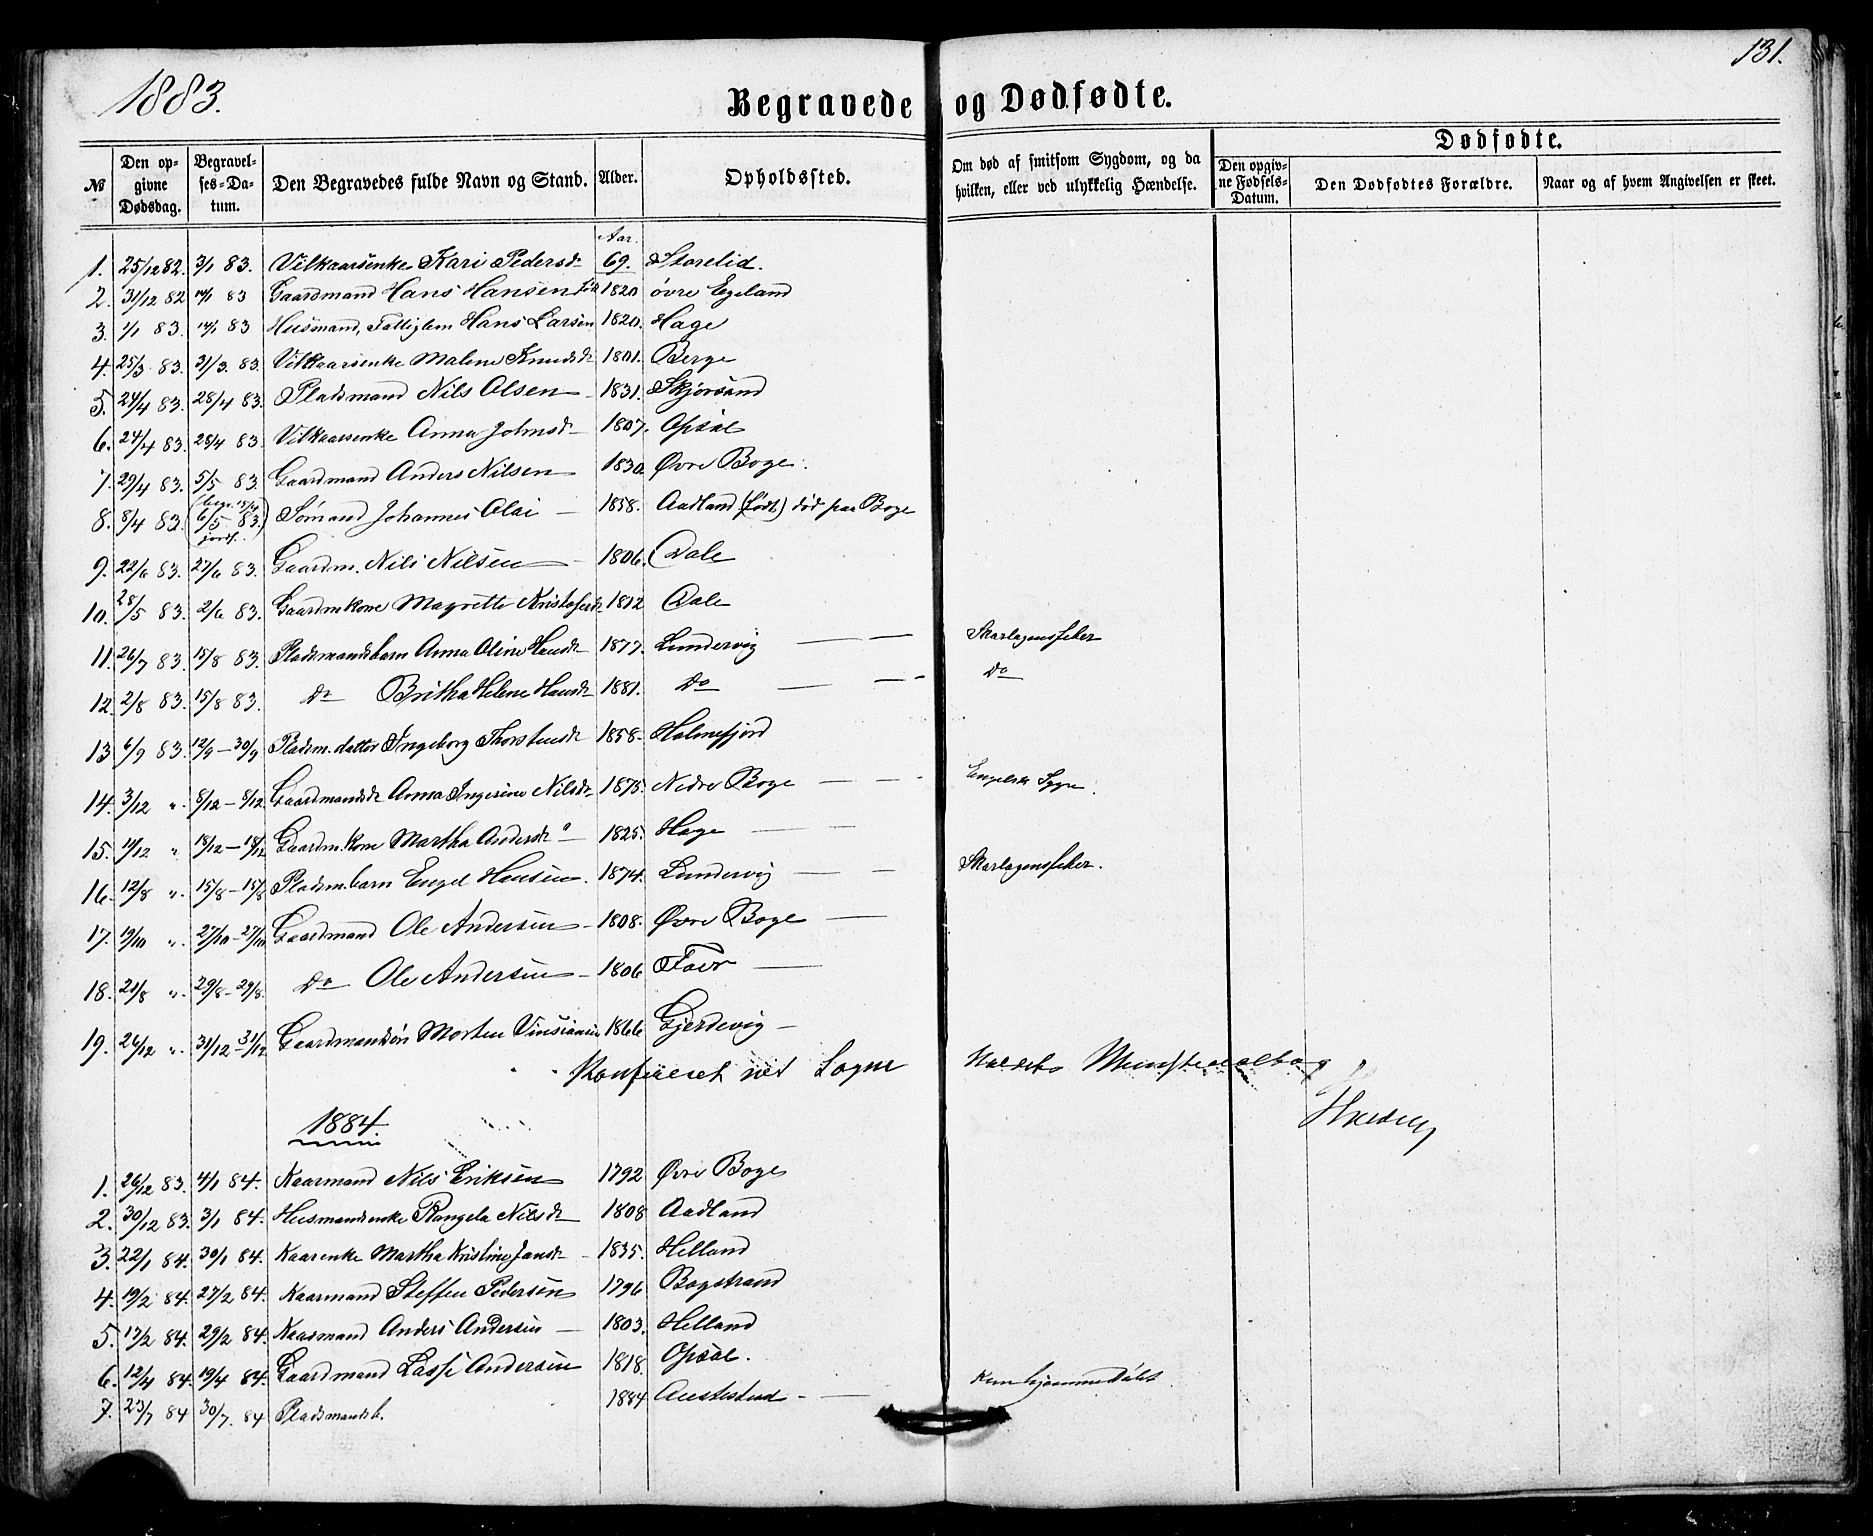 131.
1883.
Begravede og Dødfødte.
Dødfødte.
№ Den opgivne Dødsdag. Begravelses-Datum. Den Begravedes fulde Navn og Stand. Alder. Opholdssted. Om død af smitsom Sygdom, og da hvilken, eller ved ulykkelig Hændelse. Den opgivne Fødsels-Datum. Den Dødfødtes Forældre. Naar og af hvem Angivelsen er skeet.
Aar.
1. 25/12 82. 3/1 83. Vilkaarsenke Kari Pedersd. 69. Storelid.
2. 31/12 82 14/1 83 Gaardmand Hans Hansen 1820 øvre Egeland
3. 1/1 83. 14/1 83 Husmand, Fattiglem Hans Larsen 1820. Hage
4. 25/3 83. 31/3. 83. Vilkaarsenke Malene Knudsdt 1801. Berge
5. 24/4 83. 28/4 83. Pladsmand Nils Olsen – 1831. Skjørsand
6. 24/4 83. 28/4 83. Vilkaarsenke Anna Johnsdt 1807. Opsal
7. 29/4 83. 5/5 83. Gaardmand Anders Nilsen 1830. Øvre Boge.
8. 8/4 83. (begr. 6/5 83. jordf.) Sømand Johannes Olai – 1858. Aadland (født) død paa Boge
9. 22/6 83. 27/6 83. Gaardm. Nils Nilsen – 1806. Dale
10. 28/5 83. 2/6 83. Gaardmkone Magrethe Kristofersdt 1812 Dale
11. 26/7 83. 15/8 83. Pladsmandsbarn Anna Oline Hansdt 1877. Lundervig — — Skarlagensfeber
12. 2/8 83. 15/8 83. Do Britha Helene Hansdt 1881. Do — – - Do
13 6/9 83. 12/9 – 30/9 Pladsm. datter Ingeborg Thorstensdt 1858. Holmefjord
14. 3/12 ". 8/12 – 8/12 Gaardmandsdt Anna Ingerine Nilsdt 1875. Nedre Boge — – - Engelsk Syge.
15. 11/12 " 18/12 – 18/12 Gaardm. kone Martha Andersdt – 1825. Hage — –
16. 12/8 ". 15/8 – 15/8 Pladsm. barn Engel Hansen. 1874. Lundervig — – Skarlagensfeber.
17. 19/10 ". 27/10 – 27/10 Gaardmand Ole Andersen – 1808. Øvre Boge —
18. 21/8 ". 29/8 – 29/8. Do Ole Andersen – 1806 —
19. 26/12 ". 31/12 – 31/12 Gaardmandsøn Morten 1866 Gjerdevig –
Konfereret med Sogne
1884
1. 26/12 83. 4/1 84. Kaarmand Nils Eriksen 1792 Øvre Boge
2. 30/12 83. 3/1 84. Husmandsenke Rangela Nilsdt 1808 Aadland
3. 22/1 84. 30/1 84. Kaarenke Martha Kristine Jansdt – 1835. Helland
4. 19/2 84. 27/2 84. Kaarmand Steffen Pedersen 1796 Bogstrand
5. 17/2 84. 29/2 84. Kaarmand Anders Andersen – 1803. Helland
6. 12/4 84. 19/4 84. Gaardmand Lasse Andersen 1818. Opsal.
7. 23/7 84 30/7. 84 Pladsmandsb. 1884 – — Kun hjemmedøbt.